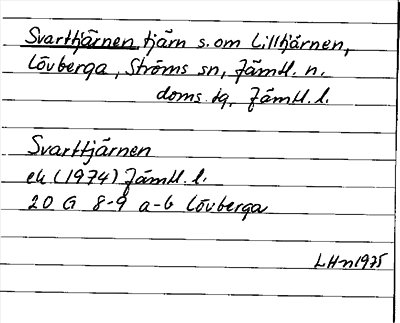 Svarttjärnen tjärn s. om Lilltjärnen,
Lövberga, Ströms sn, Jämtl. n.
doms. tg, Jämtl. l.
Svarttjärnen
ek (1974) Jämtl. l.
20 G 8-9 a-b Lövberga
LHn 1975